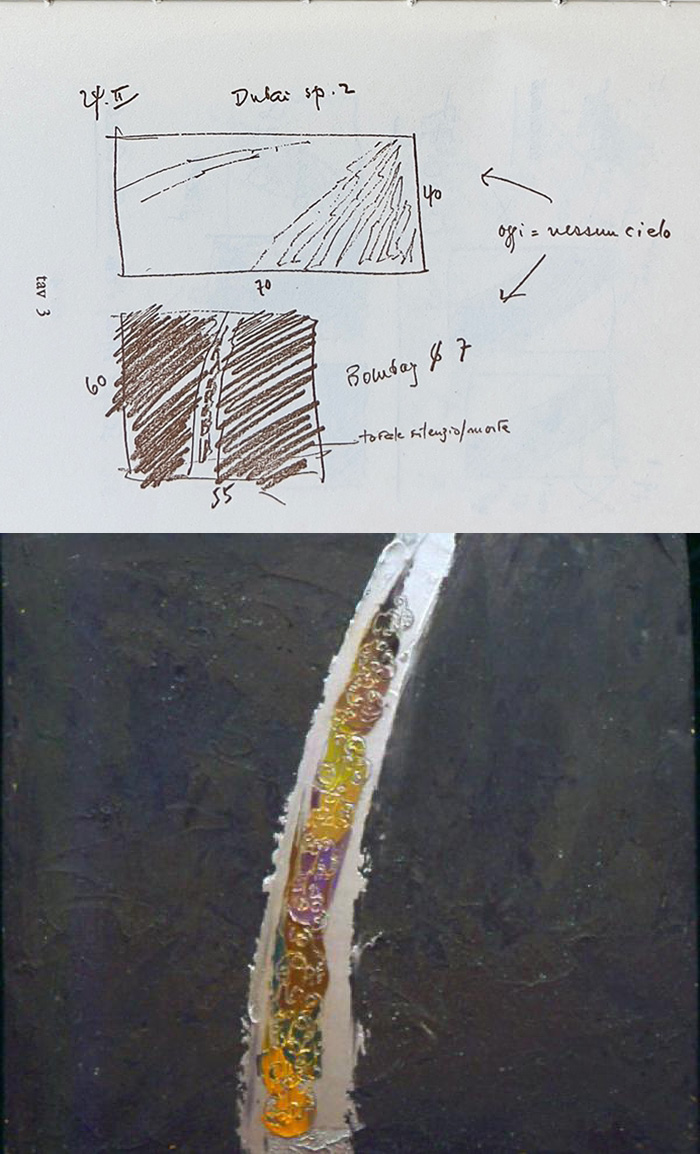 24.II
Dubai sp.2
40
oggi = nessun cielo
70
tav 3
60
Bombay $ 7
totale silenzio/morte
55